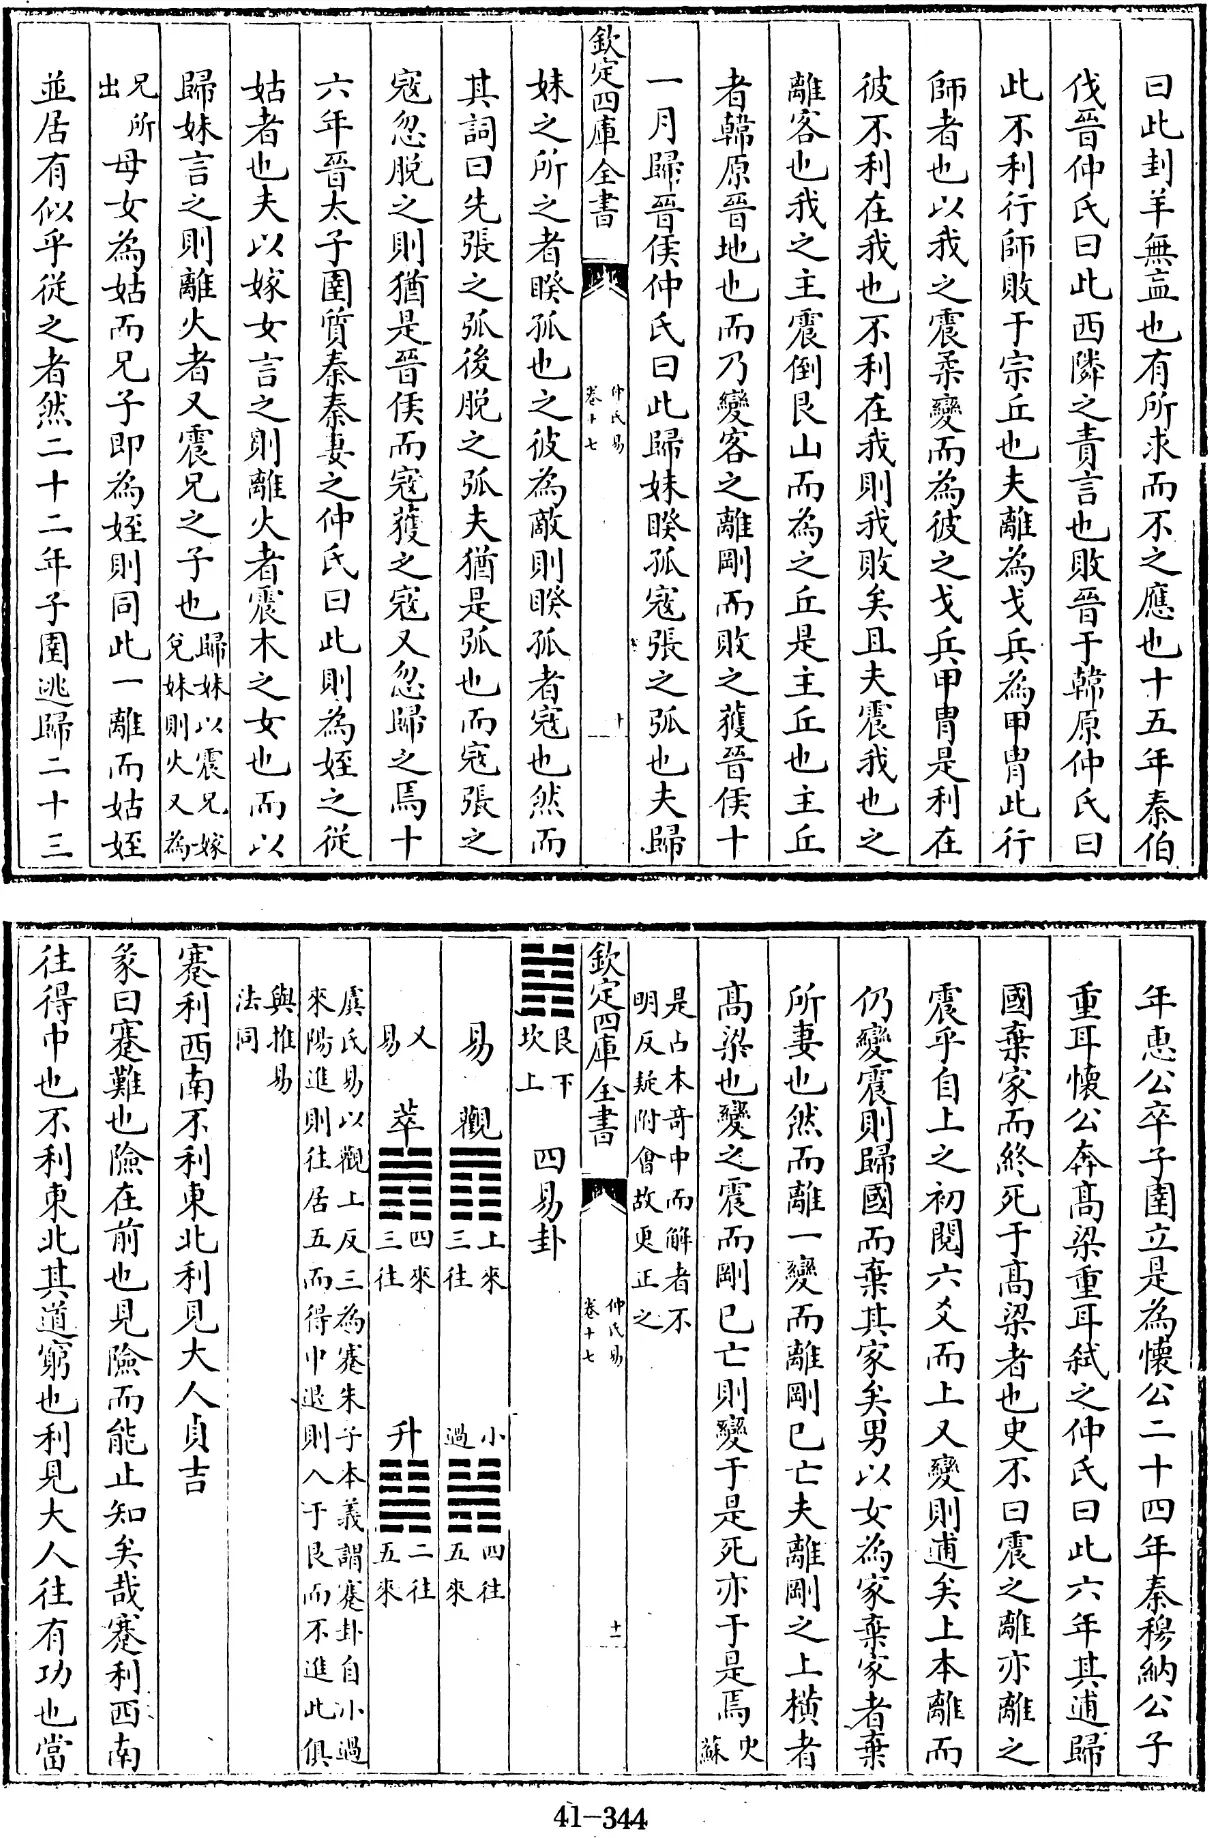 曰此刲羊無衁也有所求而不之應也十五年秦伯
伐晉仲氏曰此西隣之責言也敗晉于韓原仲氏曰
此不利行師敗于宗丘也夫離為戈兵為甲冑此行
師者也以我之震柔變而為彼之戈兵甲冑是利在
彼不利在我也不利在我則我敗矣且夫震我也之
離客也我之主震倒艮山而為之丘是主丘也主丘
者韓原晉地也而乃變客之離剛而敗之獲晉侯十
一月歸晉侯仲氏曰此歸妹睽孤寇張之弧也夫歸
欽定四庫全書
仲氏易
卷十七
十
妹之所之者睽孤也之彼為敵則睽孤者寇也然而
其詞曰先張之弧後脫之弧夫猶是弧也而寇張之
寇忽脫之則猶是晉侯而寇獲之寇又忽歸之焉十
六年晉太子圉質秦秦妻之仲氏曰此則為姪之從
姑者也夫以嫁女言之則離火者震木之女也而以
歸妹言之則離火者又震兄之子也
歸妹以震兄嫁
兌妹則火又為
兄所
出
母女為姑而兄子即為姪則同此一離而姑姪
並居有似乎從之者然二十二年子圉逃歸二十三
年惠公卒子圉立是為懷公二十四年秦穆納公子
重耳懷公奔高梁重耳弑之仲氏曰此六年其逋歸
國棄家而終死于高梁者也史不曰震之離亦離之
震乎自上之初閱六爻而上又變則逋矣上本離而
仍變震則歸國而棄其家矣男以女為家棄家者棄
所妻也然而離一變而離剛已亡夫離剛之上橫者
高梁也變之震而剛已亡則變于是死亦于是焉
史
蘇
是占本奇中而解者不
明反疑附會故更正之
欽定四庫全書
仲氏易
卷十七
十一
䷦
艮下
坎上
四易卦
易
觀䷓
上來
三往
小
過
䷽
四往
五來
又
易
萃䷬
四來
三往
升䷭
二往
五來
虞氏易以觀上反三為蹇朱子本義謂蹇卦自小過
來陽進則往居五而得中退則入于艮而不進此俱
與推易
法同
蹇利西南不利東北利見大人貞吉
彖曰蹇難也險在前也見險而能止知矣哉蹇利西南
往得中也不利東北其道窮也利見大人往有功也當
41-344